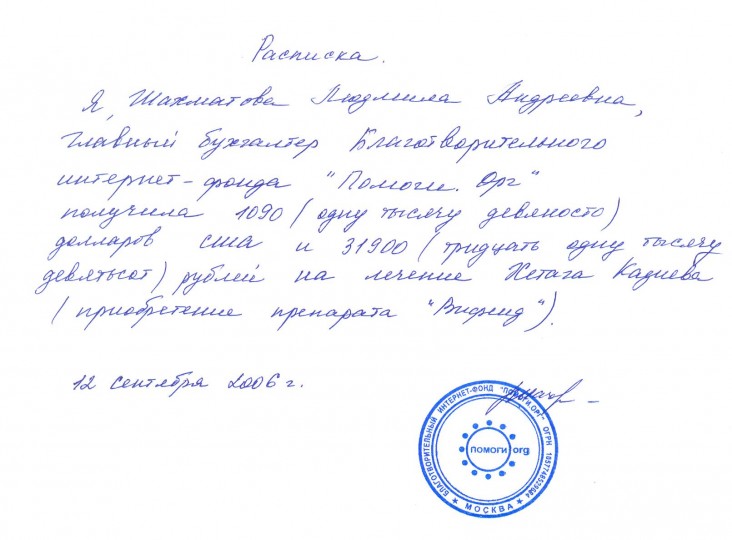 Расписка.
Я, Шахматова Людмила Андреевна,
главный бухгалтер Благотворительного
интернет-фонда "Помоги.Орг"
получила 1090 (одну тысячу девяносто)
долларов сша и 31900 (тридцать одну тысячу
девятьсот) рублей на лечение Хетага Кадиева
(приобретение препарата "Вифенд").
12 сентября 2006 г.
БЛАГОТВОРИТЕЛЬНЫЙ ИНТЕРНЕТ-ФОНД "ПОМОГИ.ОРГ" ОГРН
ПОМОГИ.org
МОСКВА